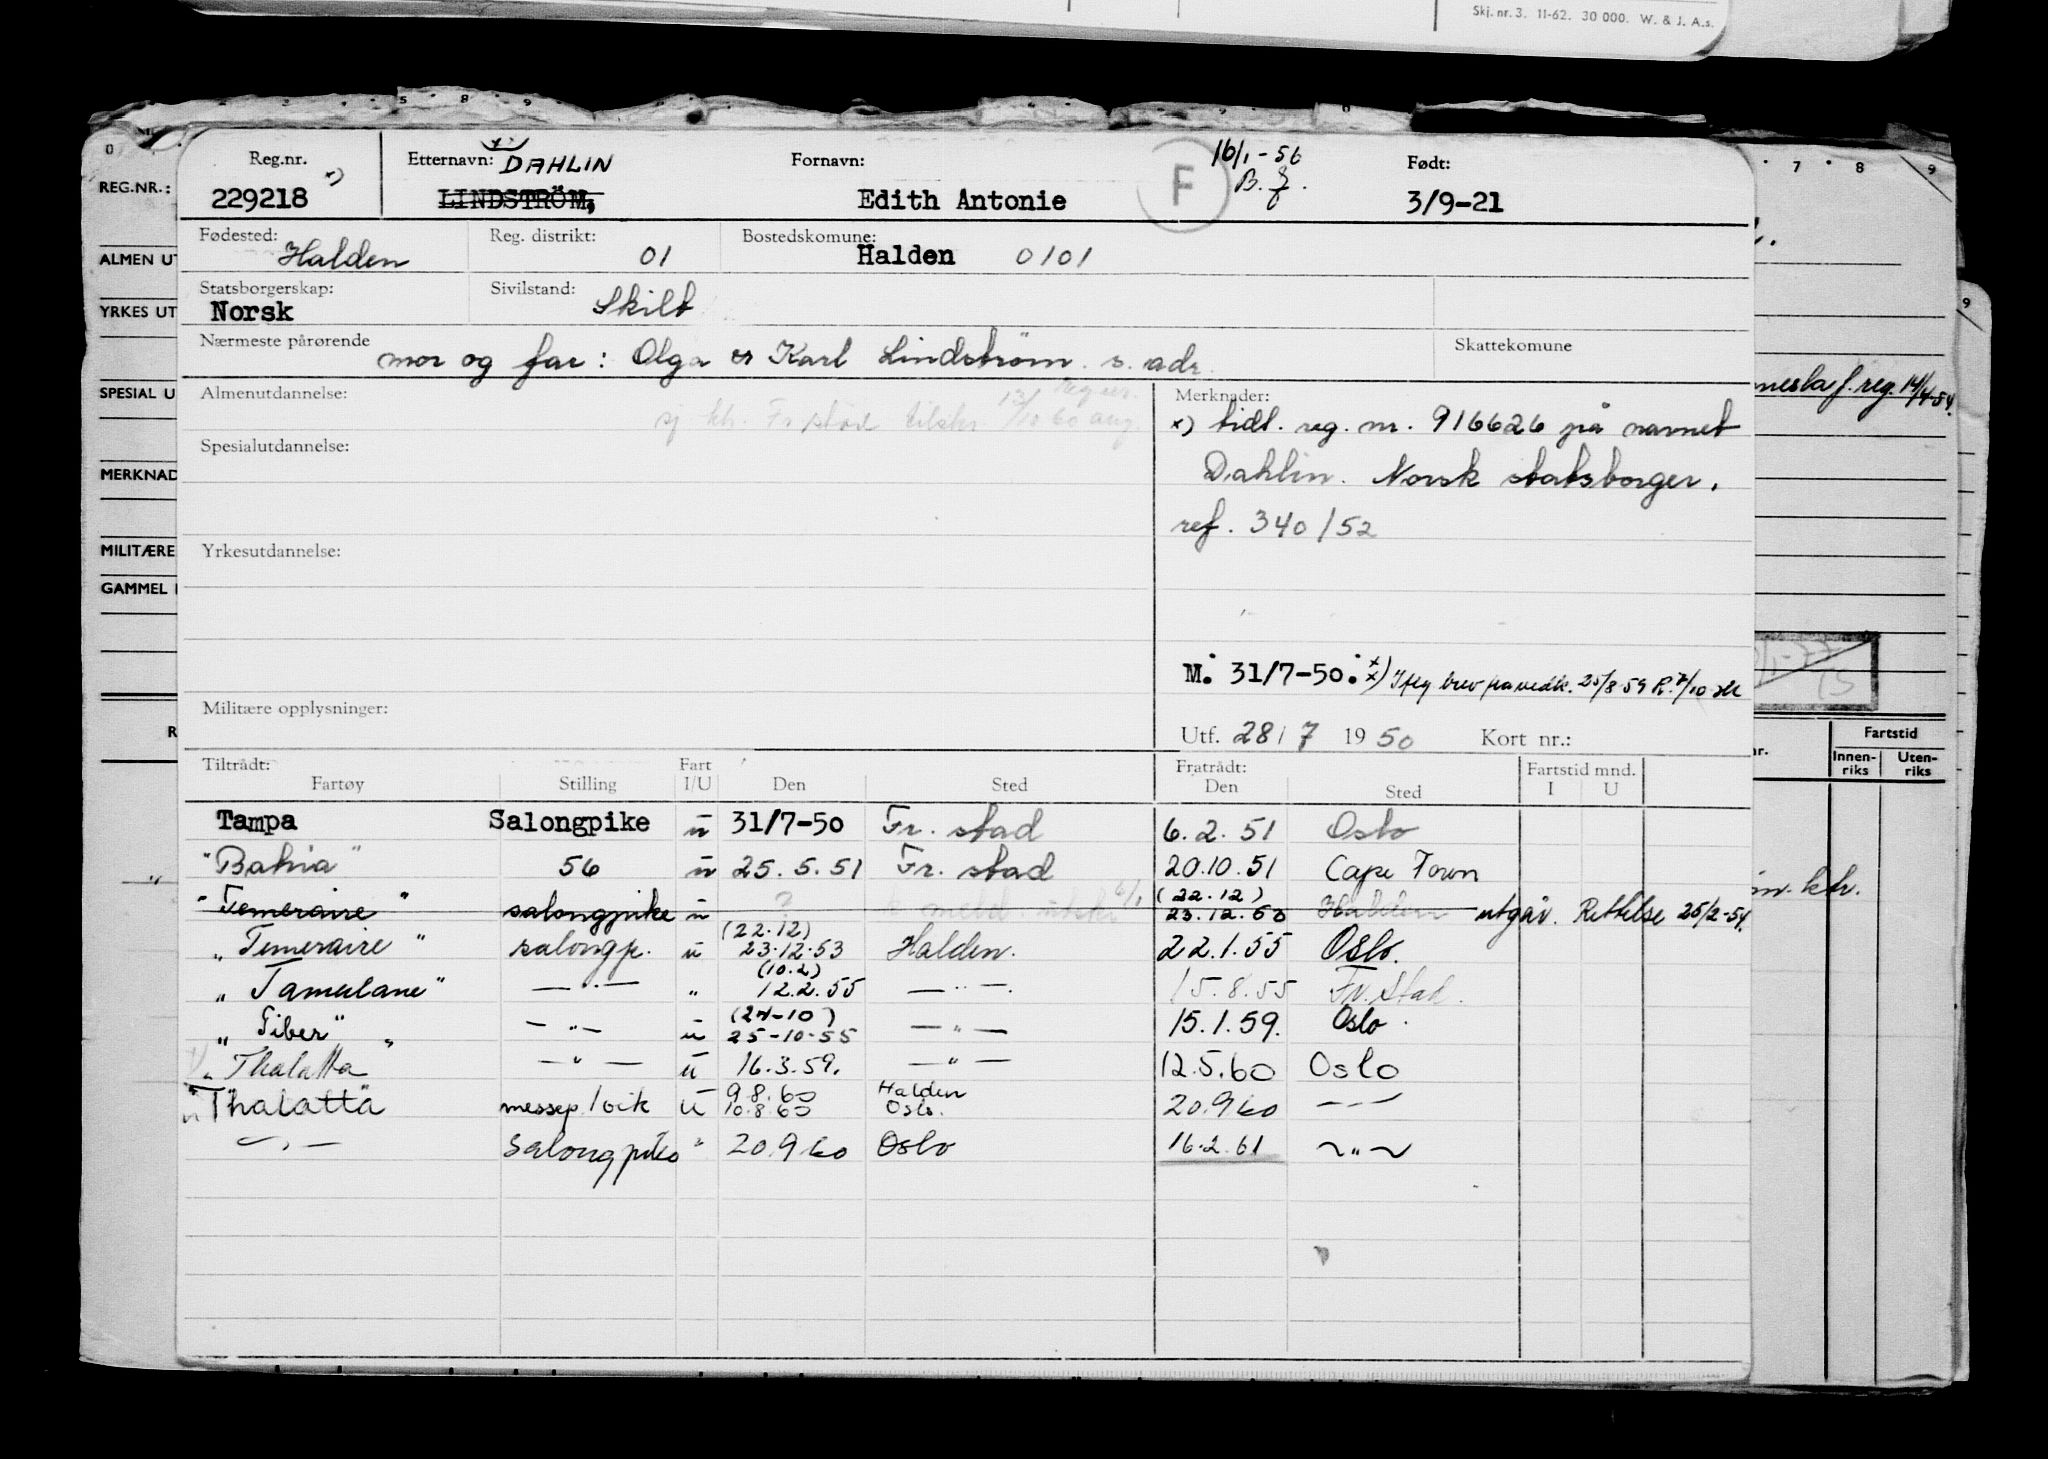 Skj. nr. 3. 11-62. 30 000. W. & J. A.s.
REG.NR.:
ALMEN UT
YRKES UT
SPESIAL U
MERKNAD
MILITÆRE
GAMMEL
Reg.nr. Etternavn: DAHLIN Fornavn: 16/1-56 Født:
229218 x) LINDSTRÖM, Edith Antonie F B. 3/9-21
Fødested: Halden Reg. distrikt: 01 Bostedskomune: Halden 0101
Statsborgerskap: Norsk Sivilstand: Skilt
Nærmeste pårørende mor og far: Olga og Karl Lindström. s. adr. Skattekomune
Almenutdannelse: Merknader:
x) tidl. reg. nr. 916626 på navnet
Spesialutdannelse: Dahlin. Norsk statsborger.
ref. 340/52
Yrkesutdannelse:
M. 31/7-50. xx) Iflg brev fra vedk. 25/8-59
Militære opplysninger: Utf. 28/7 1950 Kort nr.:
Tiltrådt: Fart Fratrådt: Fartstid mnd.
Fartøy Stilling I/U Den Sted Den Sted I U
Tampa Salongpike u 31/7-50 Fr. stad 6.2.51 Oslo
"Bahia" 56 u 25.5.51 Fr. stad 20.10.51 Cape Town
"Temeraire" salongpike u ? (22.12) 23.12.53 Halden utgår. Rettelse 25/2-54.
"Temeraire" salongp. u (22.12) 23.12.53 Halden. 22.1.55 Oslo.
"Tamerlane" — " — " (10.2) 12.2.55 — " —. 15.8.55 Fr. stad.
"Tiber" — " — u (24-10) 25-10-55 — " — 15.1.59. Oslo.
"Thalatta — " — u 16.3.59. — " — 12.5.60 Oslo
"Thalatta messep/vik u 9.8.60 10.8.60 Halden Oslo. 20.9.60 — " —
— " — Salongpike " 20.9.60 Oslo 16.2.61 — " —
7 8 9
f. reg. 14/4-54.
Fartstid
Innen-riks Uten-riks